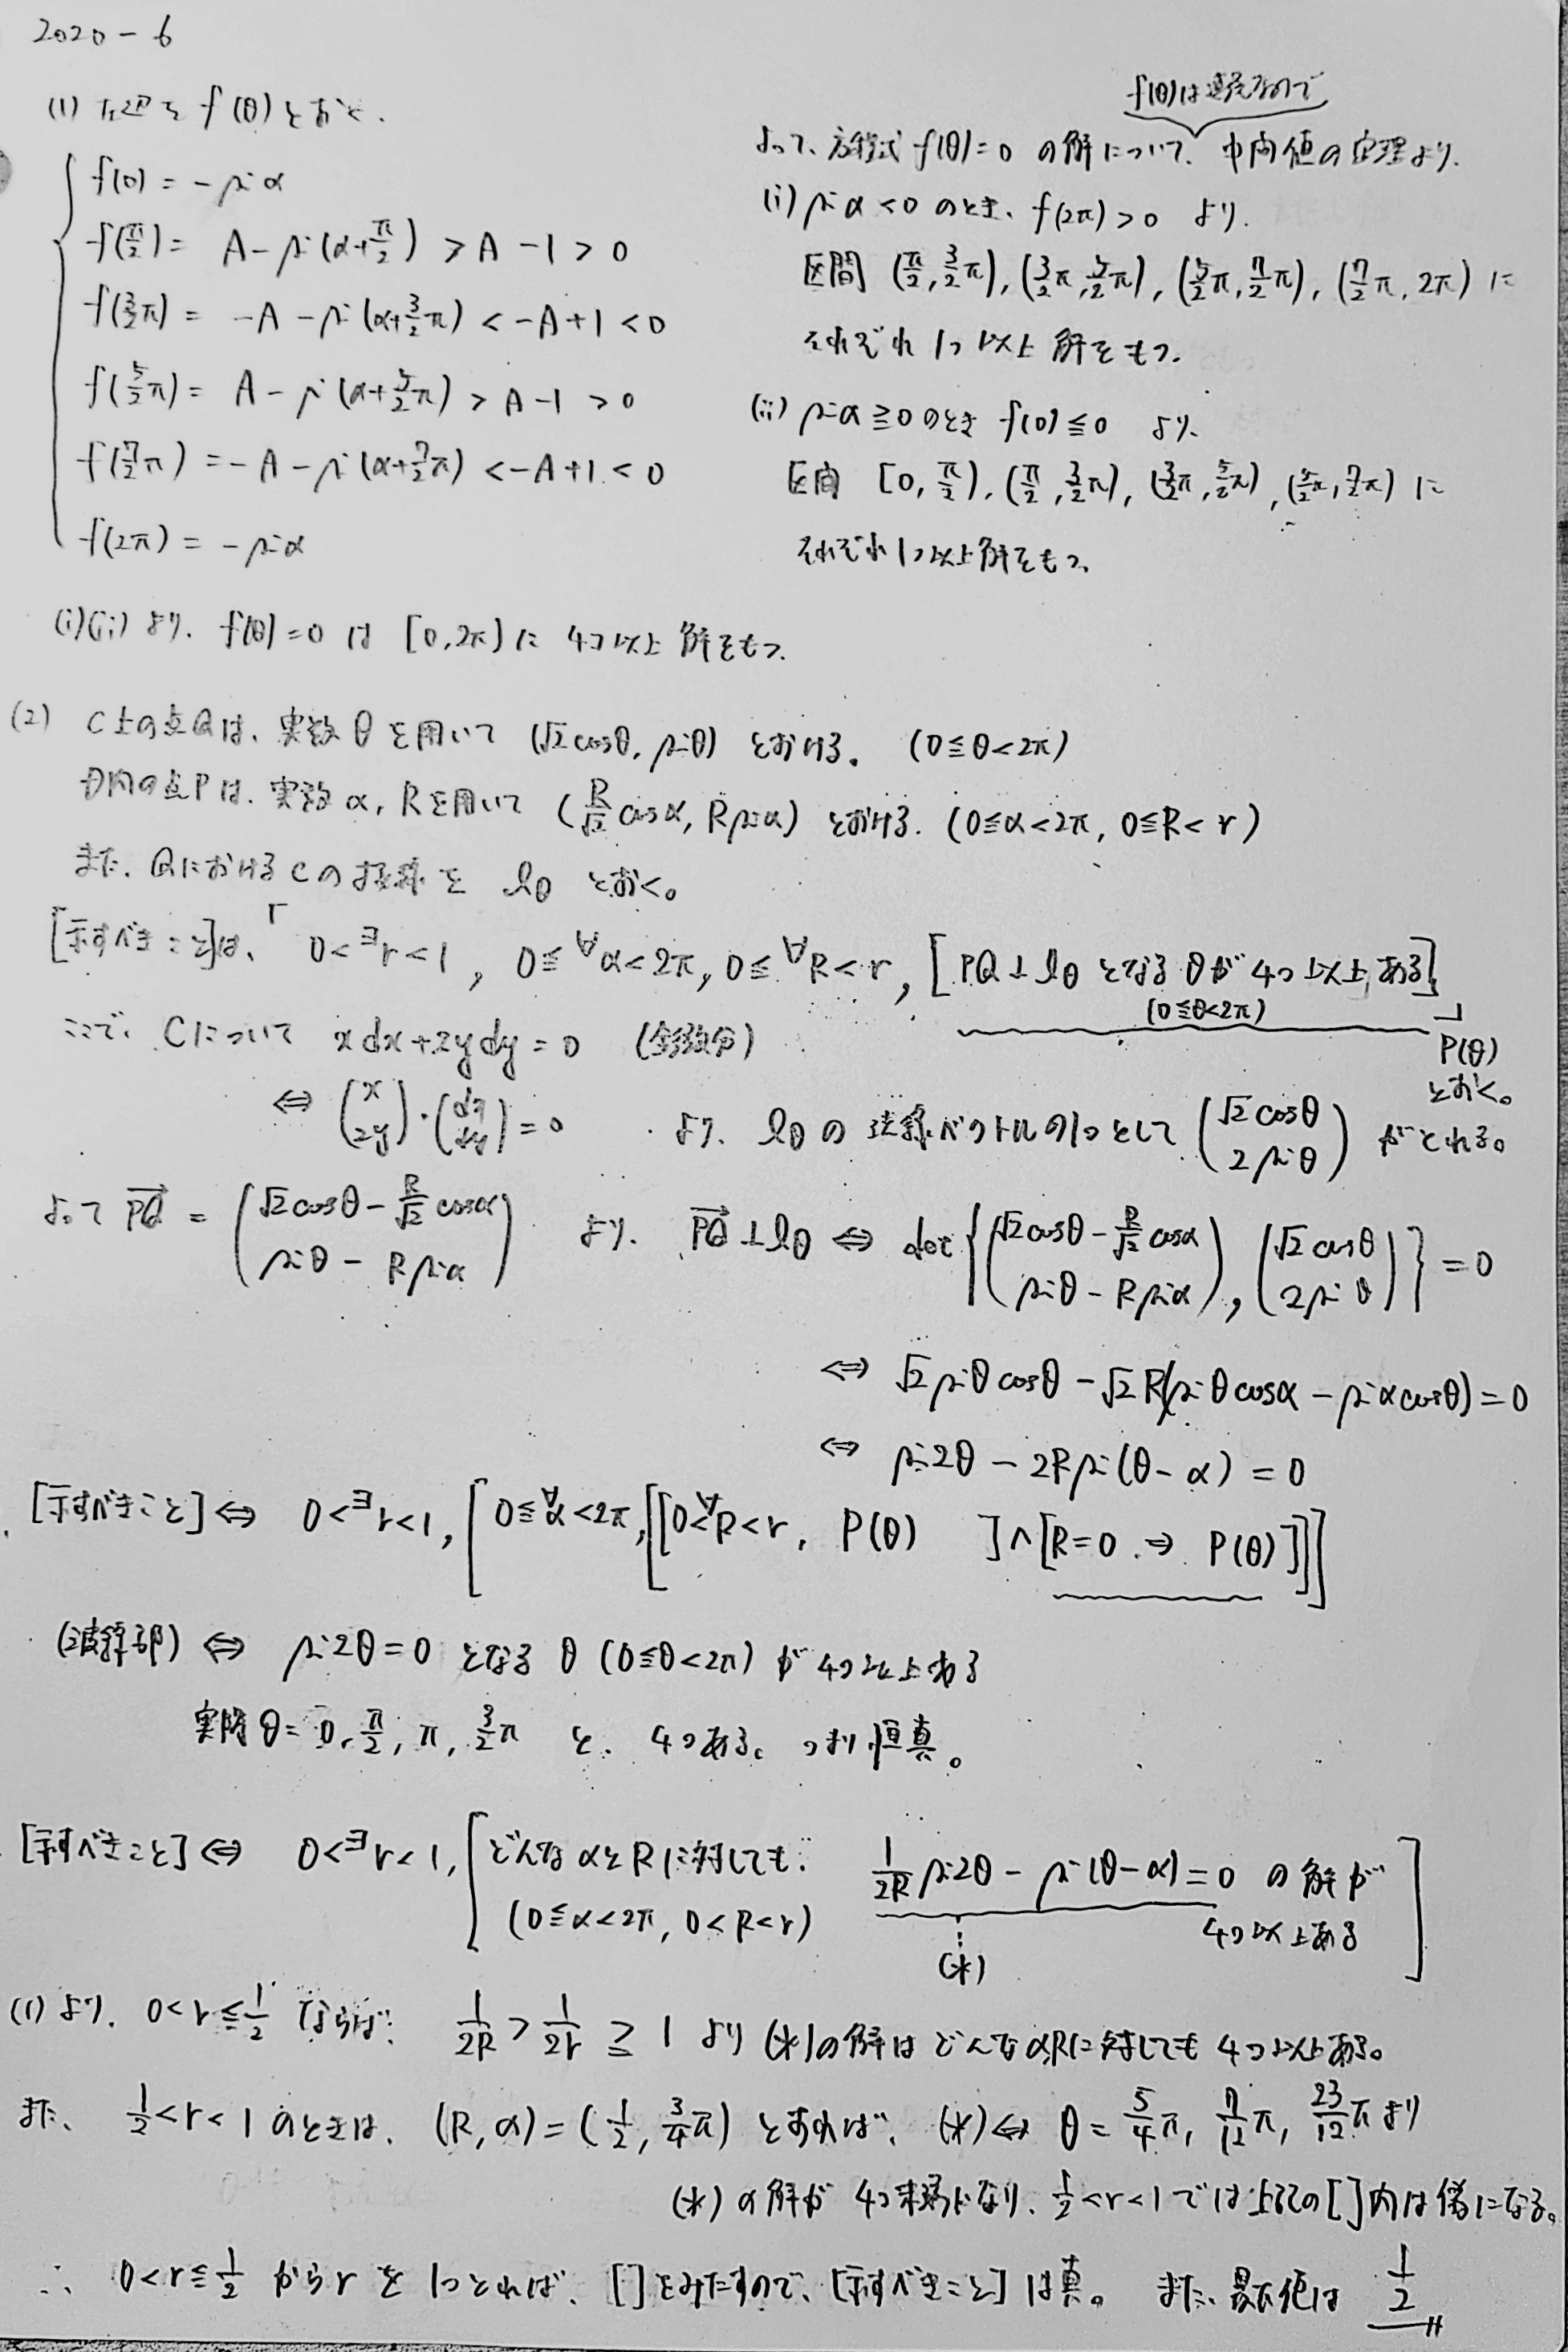 2020-6
(1) 左辺を f(θ) とおく.
f(0) = -sinα
f(π/2) = A - sin(α+π/2) > A - 1 > 0
f(3/2π) = -A - sin(α+3/2π) < -A+1 < 0
f(5/2π) = A - sin(α+5/2π) > A - 1 > 0
f(7/2π) = -A - sin(α+7/2π) < -A+1 < 0
f(2π) = -sinα
f(θ)は連続なので
よって、方程式 f(θ)=0 の解について、中間値の定理より.
(i) sinα < 0 のとき、f(2π) > 0 より.
区間 (π/2, 3/2π), (3/2π, 5/2π), (5/2π, 7/2π), (7/2π, 2π) に
それぞれ1つ以上解をもつ.
(ii) sinα ≧ 0 のとき f(0) ≦ 0 より.
区間 [0, π/2), (π/2, 3/2π), (3/2π, 5/2π), (5/2π, 7/2π) に
それぞれ1つ以上解をもつ.
(i)(ii) より. f(θ)=0 は [0, 2π) に 4つ以上 解をもつ.
(2) C上の点Qは、実数 θ を用いて (√2cosθ, sinθ) とおける。 (0≦θ<2π)
D内の点Pは、実数 α, R を用いて (R/√2 cosα, R sinα) とおける. (0≦α<2π, 0≦R<r)
また、QにおけるCの接線を lθ とおく。
[示すべきこと]は、「 0<∃r<1, 0≦∀α<2π, 0≦∀R<r, [PQ⊥lθ となる θが 4つ以上ある]」
(0≦θ<2π)
P(θ)
とおく。
ここで、Cについて xdx+2ydy=0 (全微分)
⇔ (x 2y)・(dx dy)=0 より、lθ の法線ベクトルの1つとして (√2cosθ 2sinθ) がとれる。
よって PQ→ = (√2cosθ - R/√2 cosα sinθ - R sinα) より. PQ→⊥lθ ⇔ det{(√2cosθ - R/√2 cosα sinθ - R sinα), (√2cosθ 2sinθ)} = 0
⇔ √2 sinθ cosθ - √2 R(sinθ cosα - sinα cosθ) = 0
⇔ sin2θ - 2R sin(θ-α) = 0
[示すべきこと] ⇔ 0<∃r<1, [0≦∀α<2π, [[0<∀R<r, P(θ)]∧[R=0 ⇒ P(θ)]]]
(波線部) ⇔ sin2θ=0 となる θ (0≦θ<2π) が 4つ以上ある
実際 θ=0, π/2, π, 3/2π と、4つある。つまり恒真。
[示すべきこと] ⇔ 0<∃r<1, [どんな αとRに対しても. 1/2R sin2θ - sin(θ-α)=0 の解が
(0≦α<2π, 0<R<r) 4つ以上ある]
(*)
(1) より. 0<r≦1/2 ならば: 1/2R > 1/2r ≧ 1 より (*)の解はどんなα,Rに対しても 4つ以上ある。
また、1/2<r<1 のときは、(R, α)=(1/2, 3/4π) とすれば、(*)⇔ θ=5/4π, 7/12π, 23/12π より
(*) の解が 4つ未満になり、1/2<r<1 では上記の[ ]内は偽になる。
∴ 0<r≦1/2 からr を1つとれば、[ ]をみたすので、[示すべきこと]は真。また、最大値は 1/2